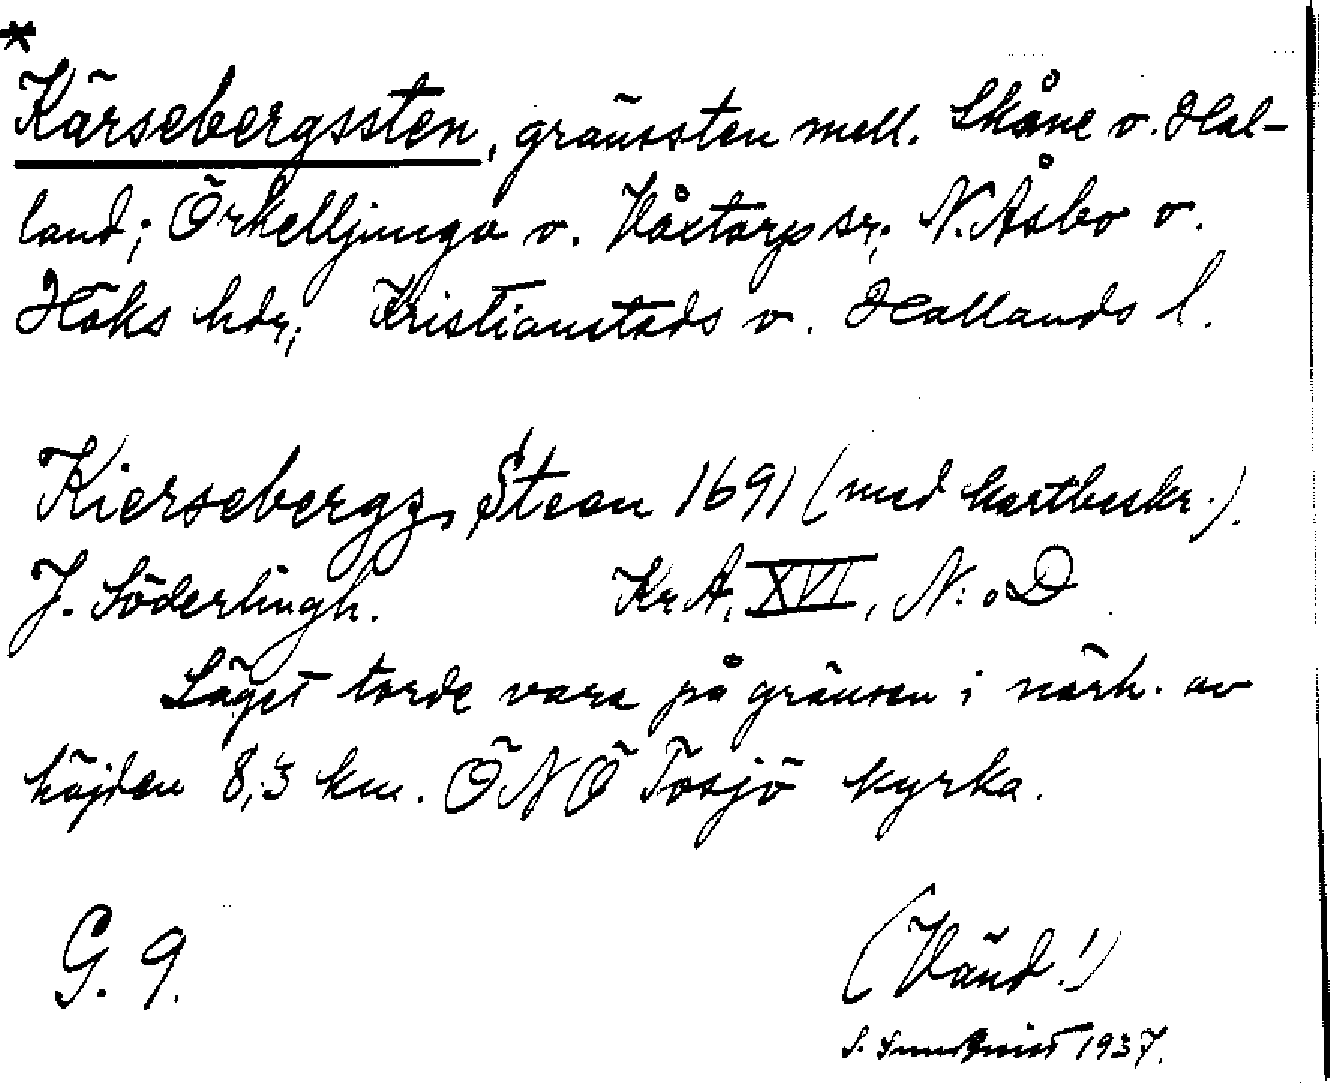 *
Kärsebergssten, gränssten mell. Skåne o. Hal-
land; Örkelljunga o. Våxtorp snr; N. Åsbo o.
Höks hdr; Kristianstads o. Hallands l.
Kiersebergz Steen 1691 (med kartbeskr.).
J. Söderlingh. Kr.A. XVI, N:o D
Läget torde vara på gränsen i närh. av
höjden 8,3 km. ÖNÖ Tosjö kyrka.
G. 9.
(Vänd!)
S. 1937.